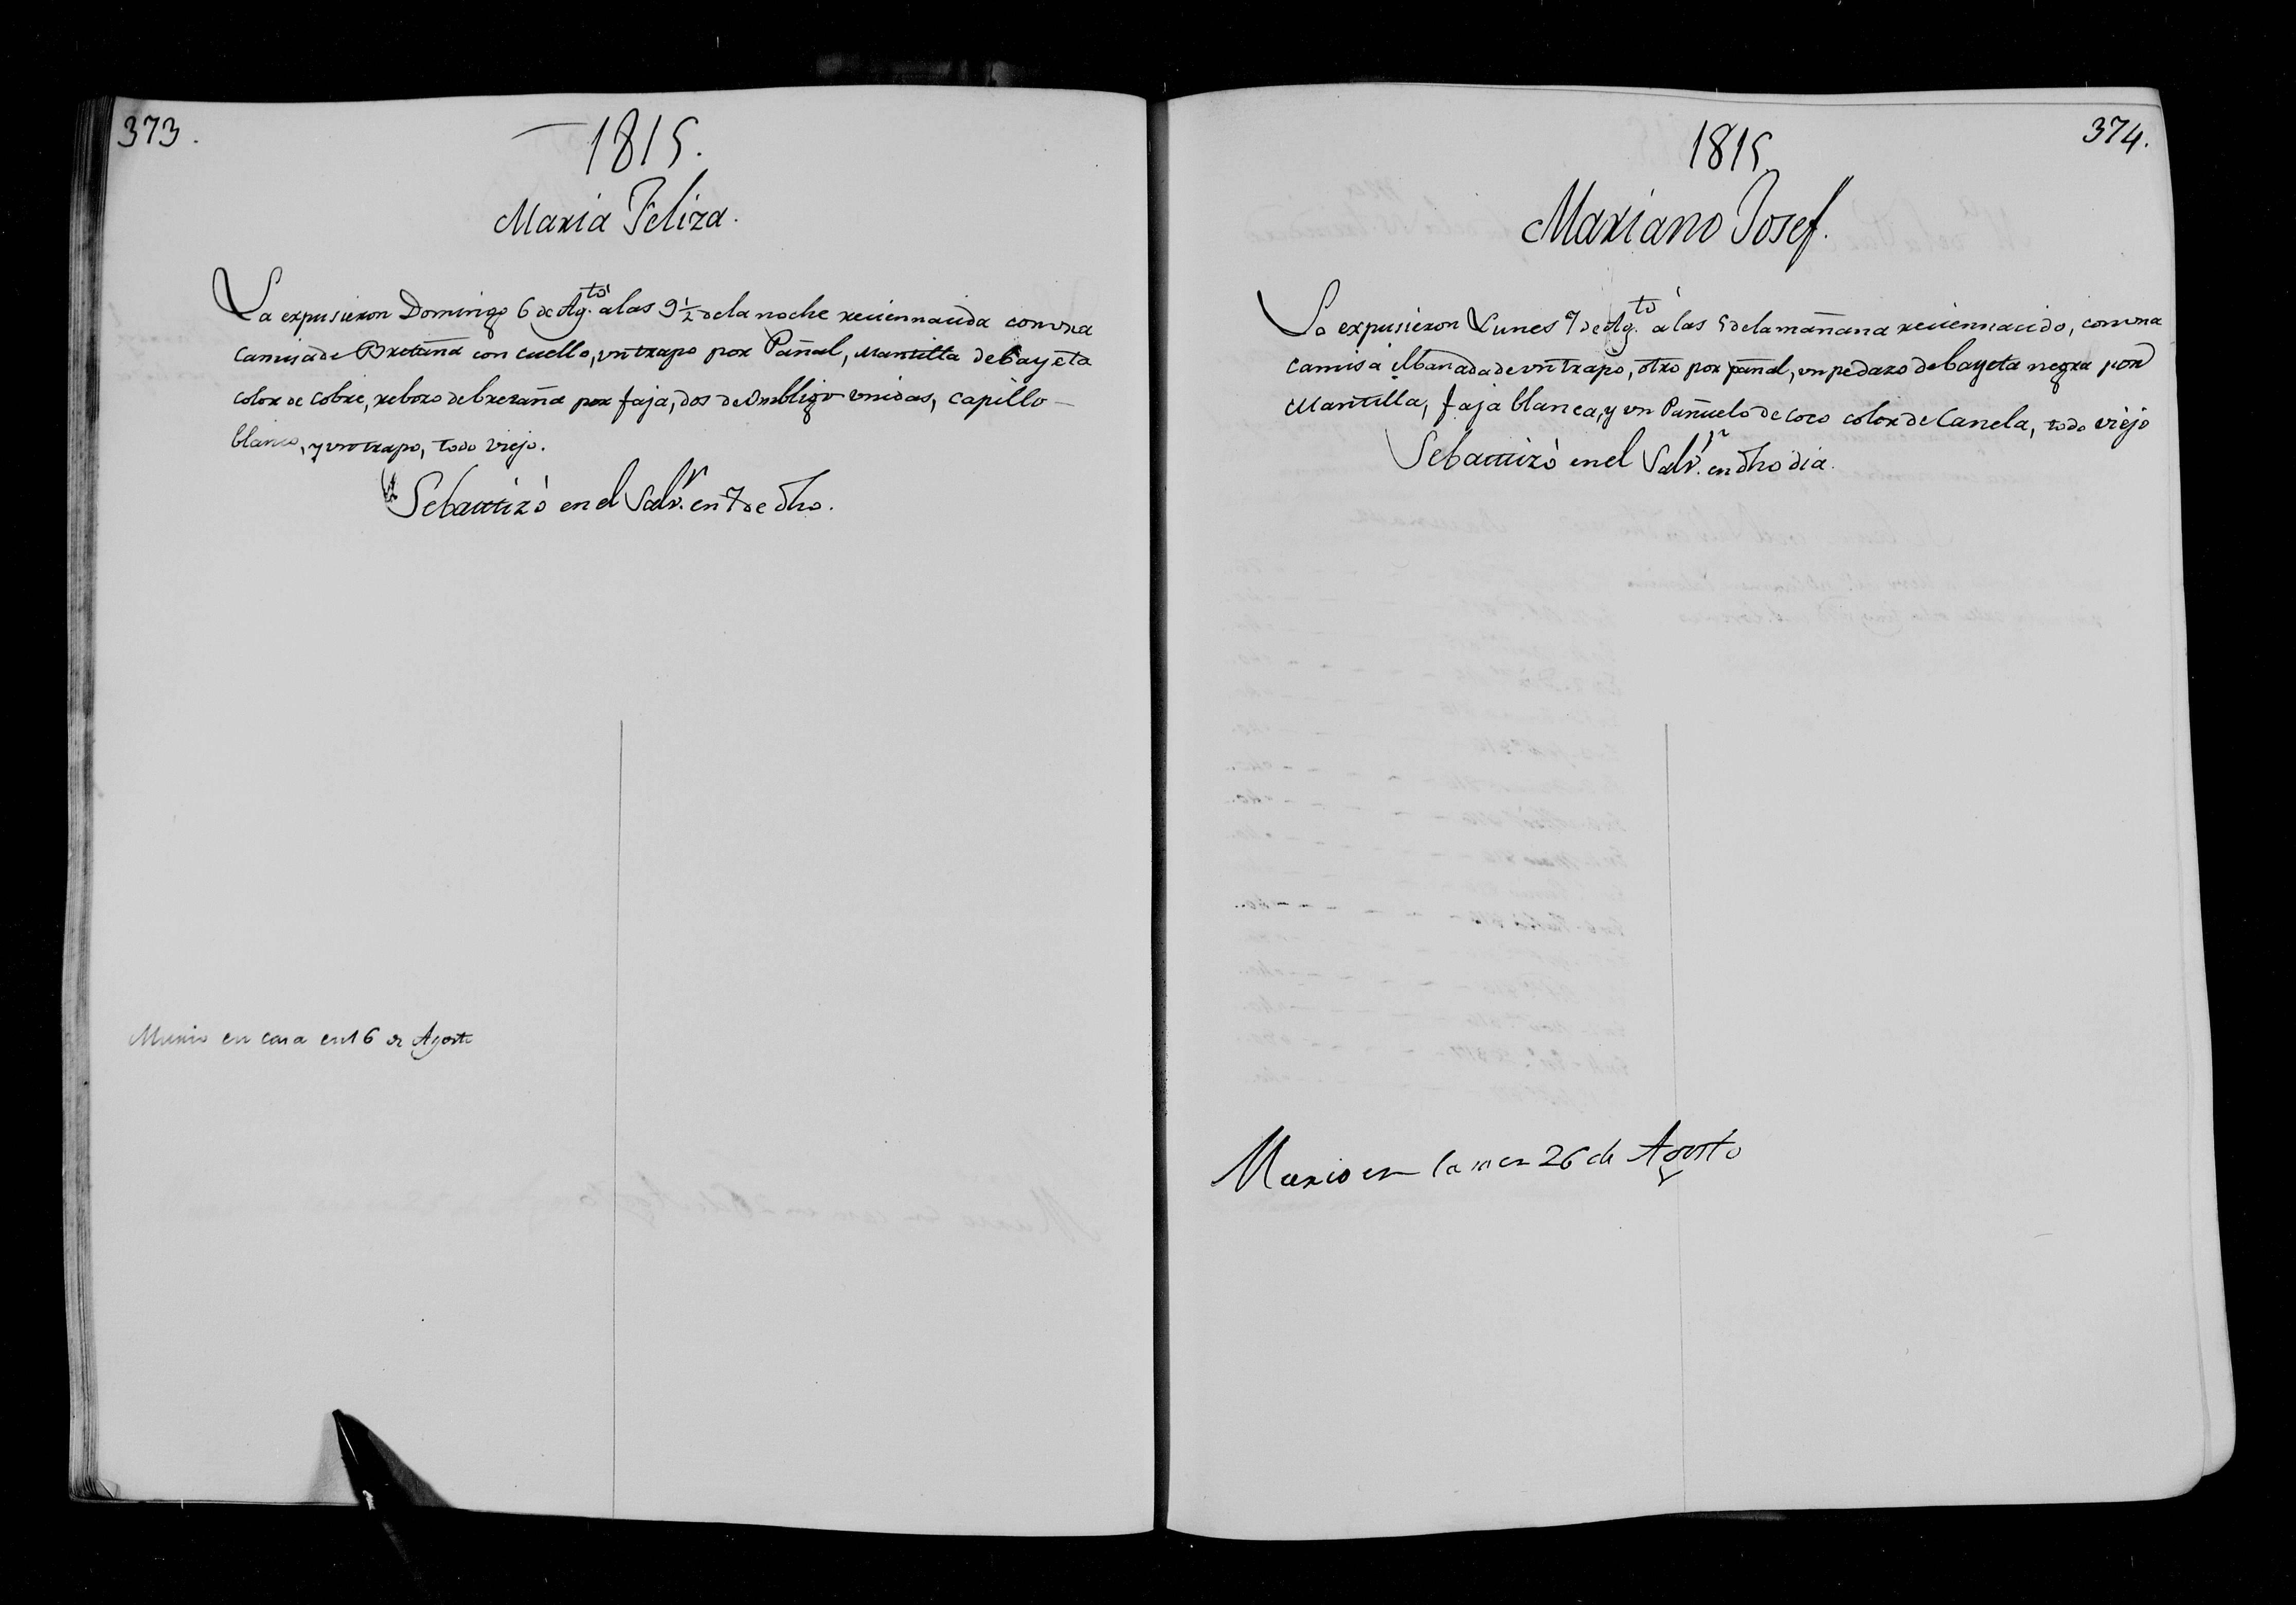 373.
1815.
Maria Feliza.
La expusieron Domingo 6 de Ag.to à las 9 1/2 de la noche reciennacida con vna
camisa de Bretaña con cuello, vn trapo por Pañal, Mantilla de bayeta
color de cobre, rebozo de bretaña por faja, dos de Ombligo vnidas, capillo
blanco, y vn trapo, todo viejo.
Se bautizò en el Salv.r en 7 de dho.
Murio en casa en 16 de Agosto
374.
1815.
Mariano Josef.
Lo expusieron Lunes 7 de Ag.to à las 5 de la mañana reciennacido, con vna
camisa de vn trapo, otro por pañal, vn pedazo de bayeta negra por
Mantilla, faja blanca, y vn Pañuelo de coco color de Canela, todo viejo
Se bautizò en el Salv.r en dho dia.
Murio en casa en 26 de Agosto